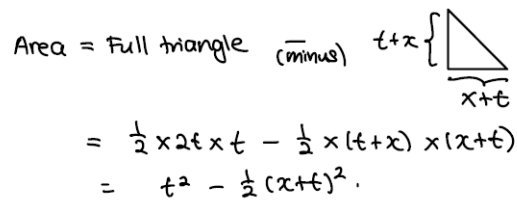 Area = Full triangle (minus) − t+x {
x+t
= 1/2 × 2t × t − 1/2 × (t+x) × (x+t)
= t² − 1/2 (x+t)² .